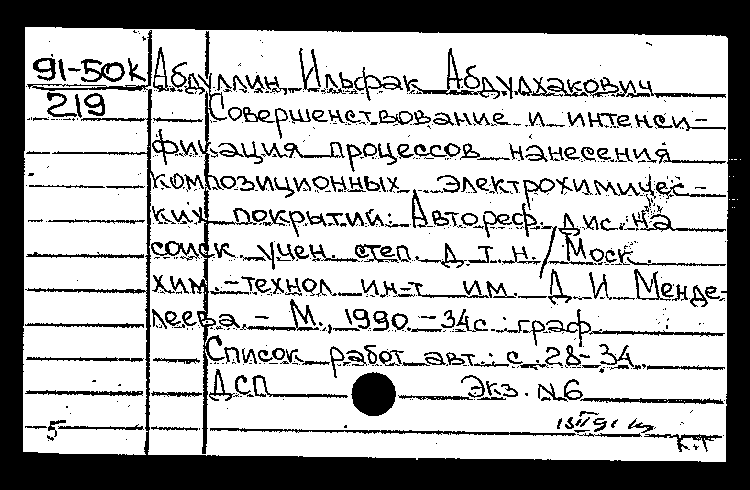 91-50к Абдуллин, Ильфак Абдулхакович
219 Совершенствование и интенси-
фикация процессов нанесения
композиционных электрохимичес-
ких покрытий: Автореф. дис. на
соиск. учен. степ. д. т. н. / Моск.
хим.-технол ин-т им. Д И Менде-
леева. - М., 1990. - 34с. : граф.
Список работ авт.: с. 28-34.
ДСП Экз. №6
5
К.Т